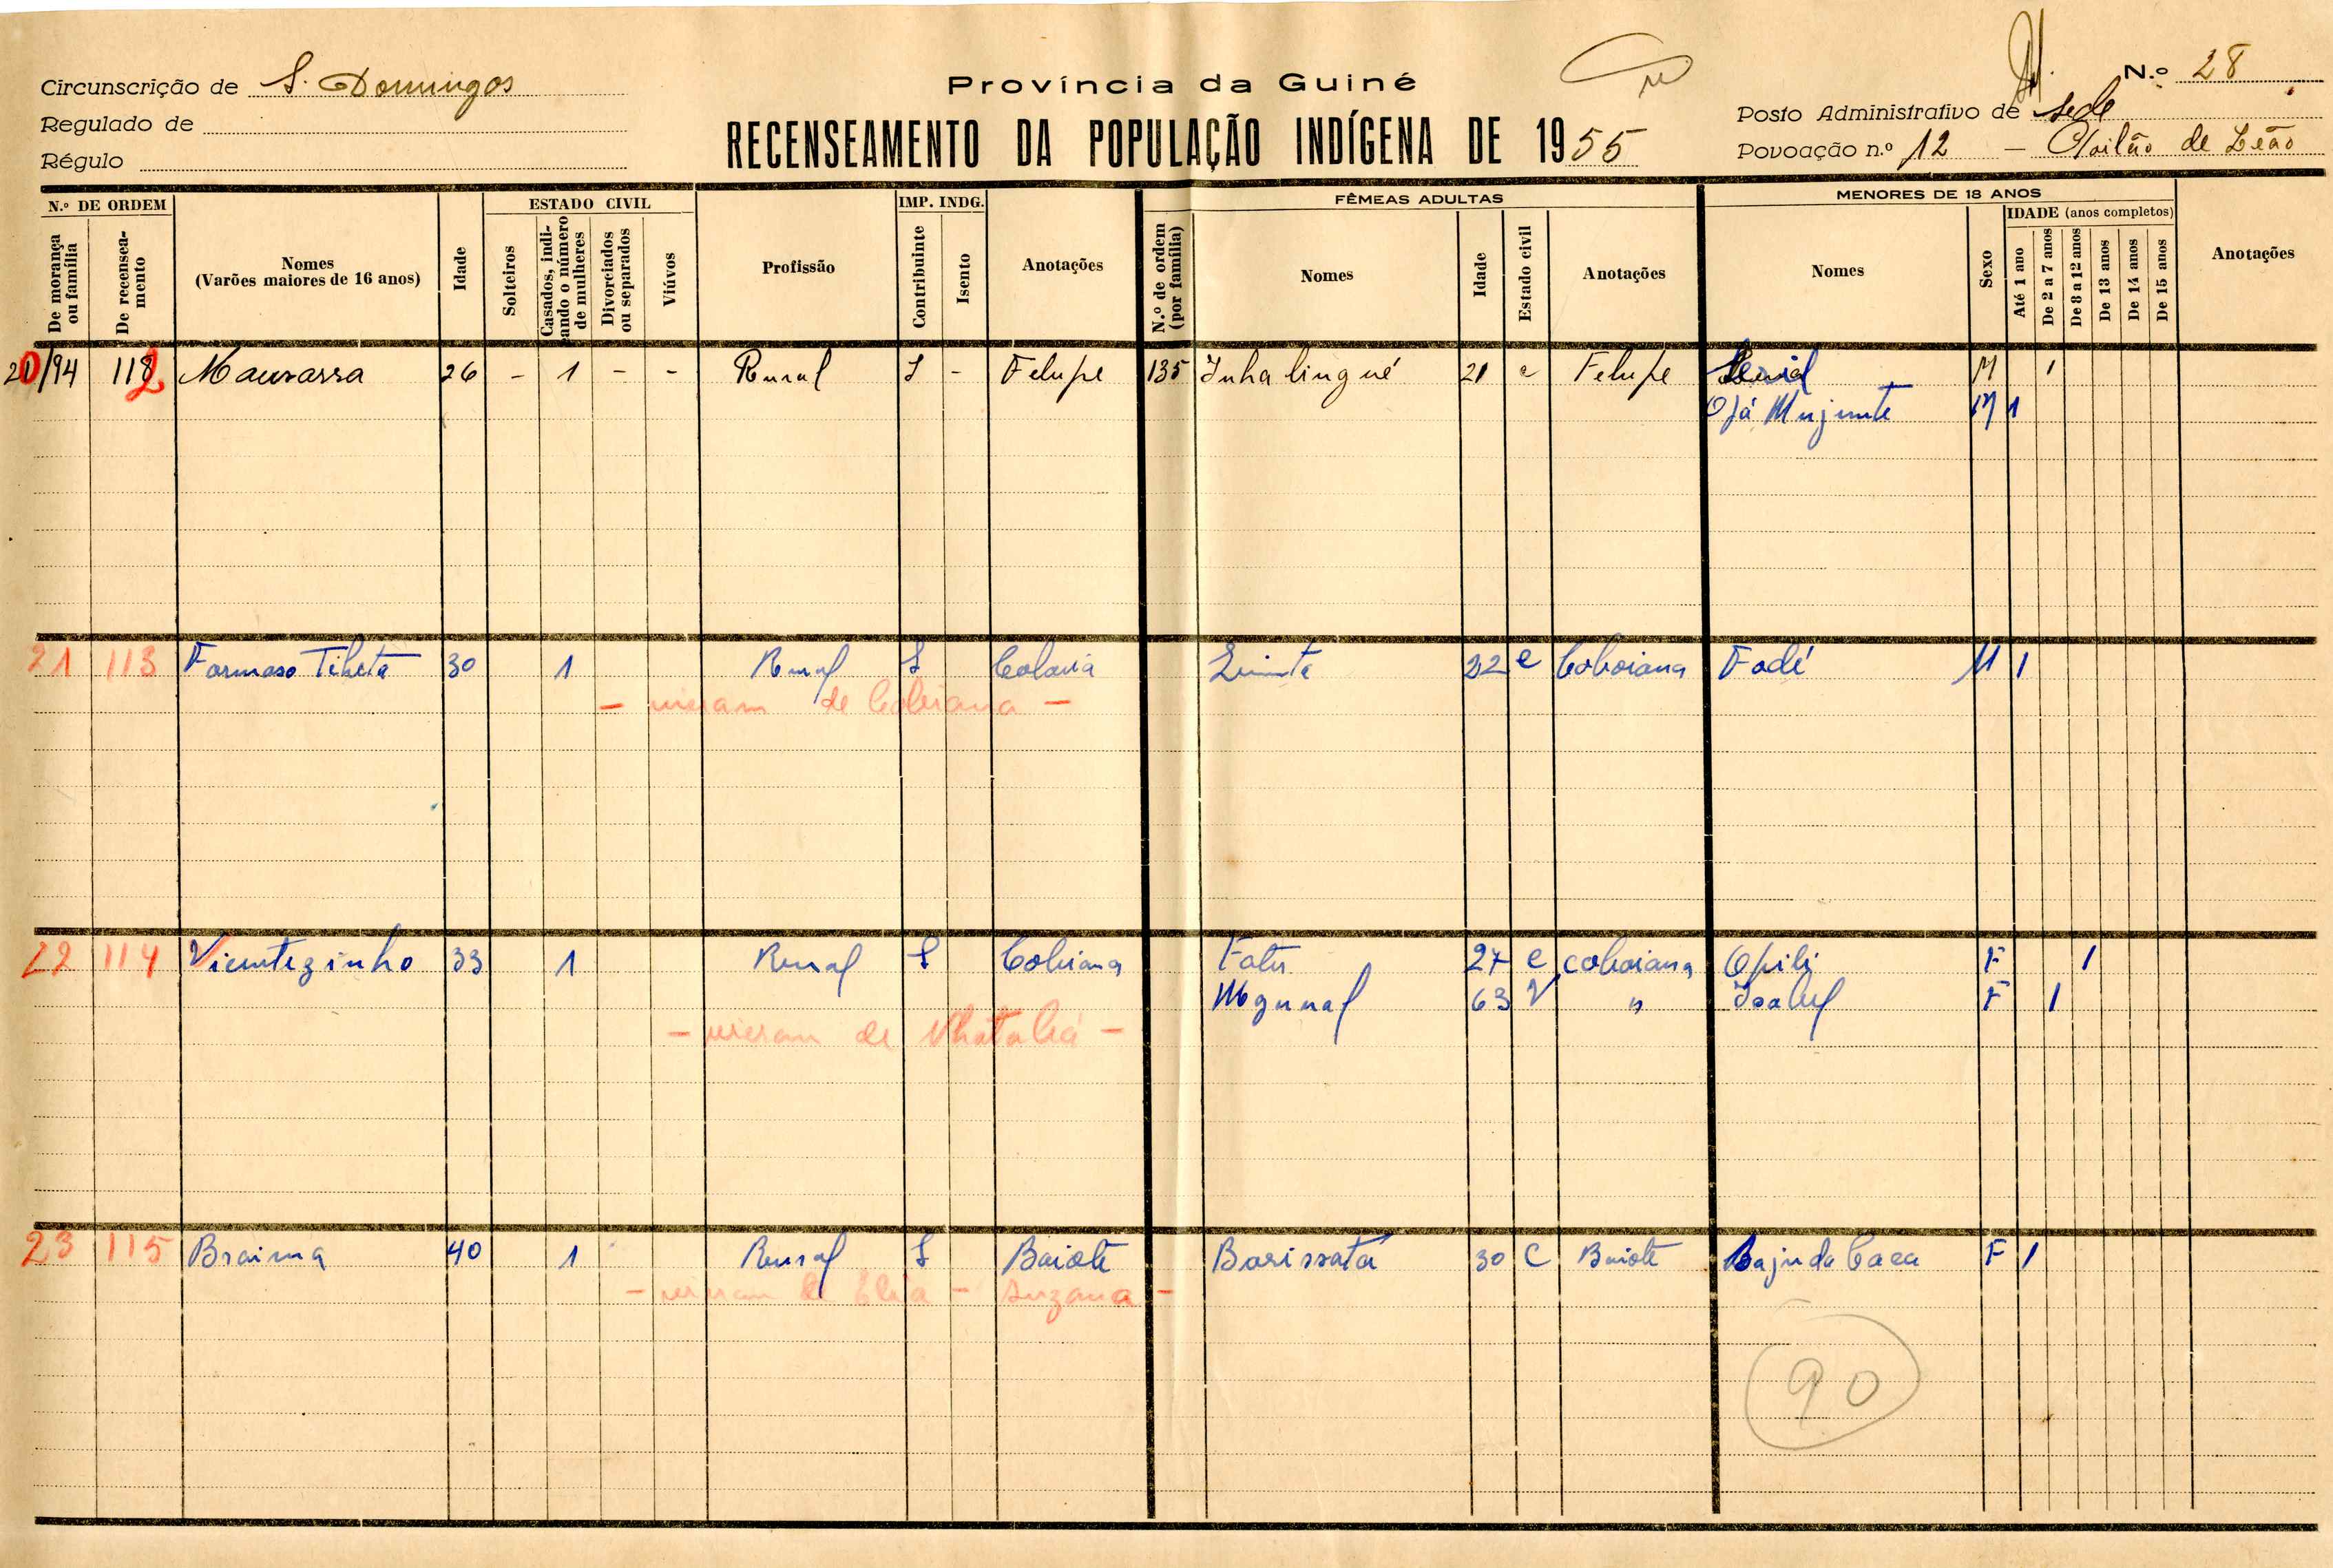 Circunscrição de S. Domingos
Regulado de
Régulo
Província da Guiné
RECENSEAMENTO DA POPULAÇÃO INDÍGENA DE 1955
N.º 28
Posto Administrativo de sede
Povoação n.º 12 — de Leão
N.º DE ORDEM
De morança ou família
De recenseamento
Nomes
(Varões maiores de 16 anos)
Idade
ESTADO CIVIL
Solteiros
Casados, indicando o número de mulheres
Divorciados ou separados
Viúvos
Profissão
IMP. INDG.
Contribuinte
Isento
Anotações
FÊMEAS ADULTAS
N.º de ordem (por família)
Nomes
Idade
Estado civil
Anotações
MENORES DE 18 ANOS
Nomes
Sexo
IDADE (anos completos)
Até 1 ano
De 2 a 7 anos
De 8 a 12 anos
De 13 anos
De 14 anos
De 15 anos
Anotações
20/94 112 Maurassa 26 - 1 - - Rural - Felupe 135 Inhalingué 21 c Felupe M 1
M 1
21 113 Formoso 30 1 Rural 22 c Coboiana Fodé M 1
— vieram de Cobiana —
22 114 Vicentezinho 33 1 Rural Cobiana Fatu 27 c coboiana Opili F 1
63 V " Isabel F 1
— vieram de —
23 115 Braima 40 1 Rural Baiote Barissatá 30 C Baiote F 1
— vieram de Elia — Suzana —
90